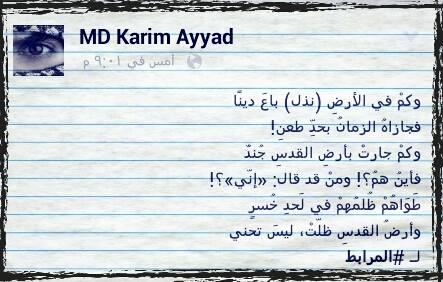 MD Karim Ayyad
أمس في ٩:٠١ م
وكمْ في الأرضِ (نذل) باعَ دينًا
فجازاهُ الزمانُ بحدِّ طعنِ!
وكمْ جارتْ بأرضِ القدسِ جُندٌ
فأينُ همْ؟! ومنْ قد قال: «إنّي»؟!
طَوَاهُمْ ظُلمُهمْ في لَحدِ خُسرٍ
وأرضُ القدسِ ظلّتْ، ليسَ تحني
لـ #المرابط